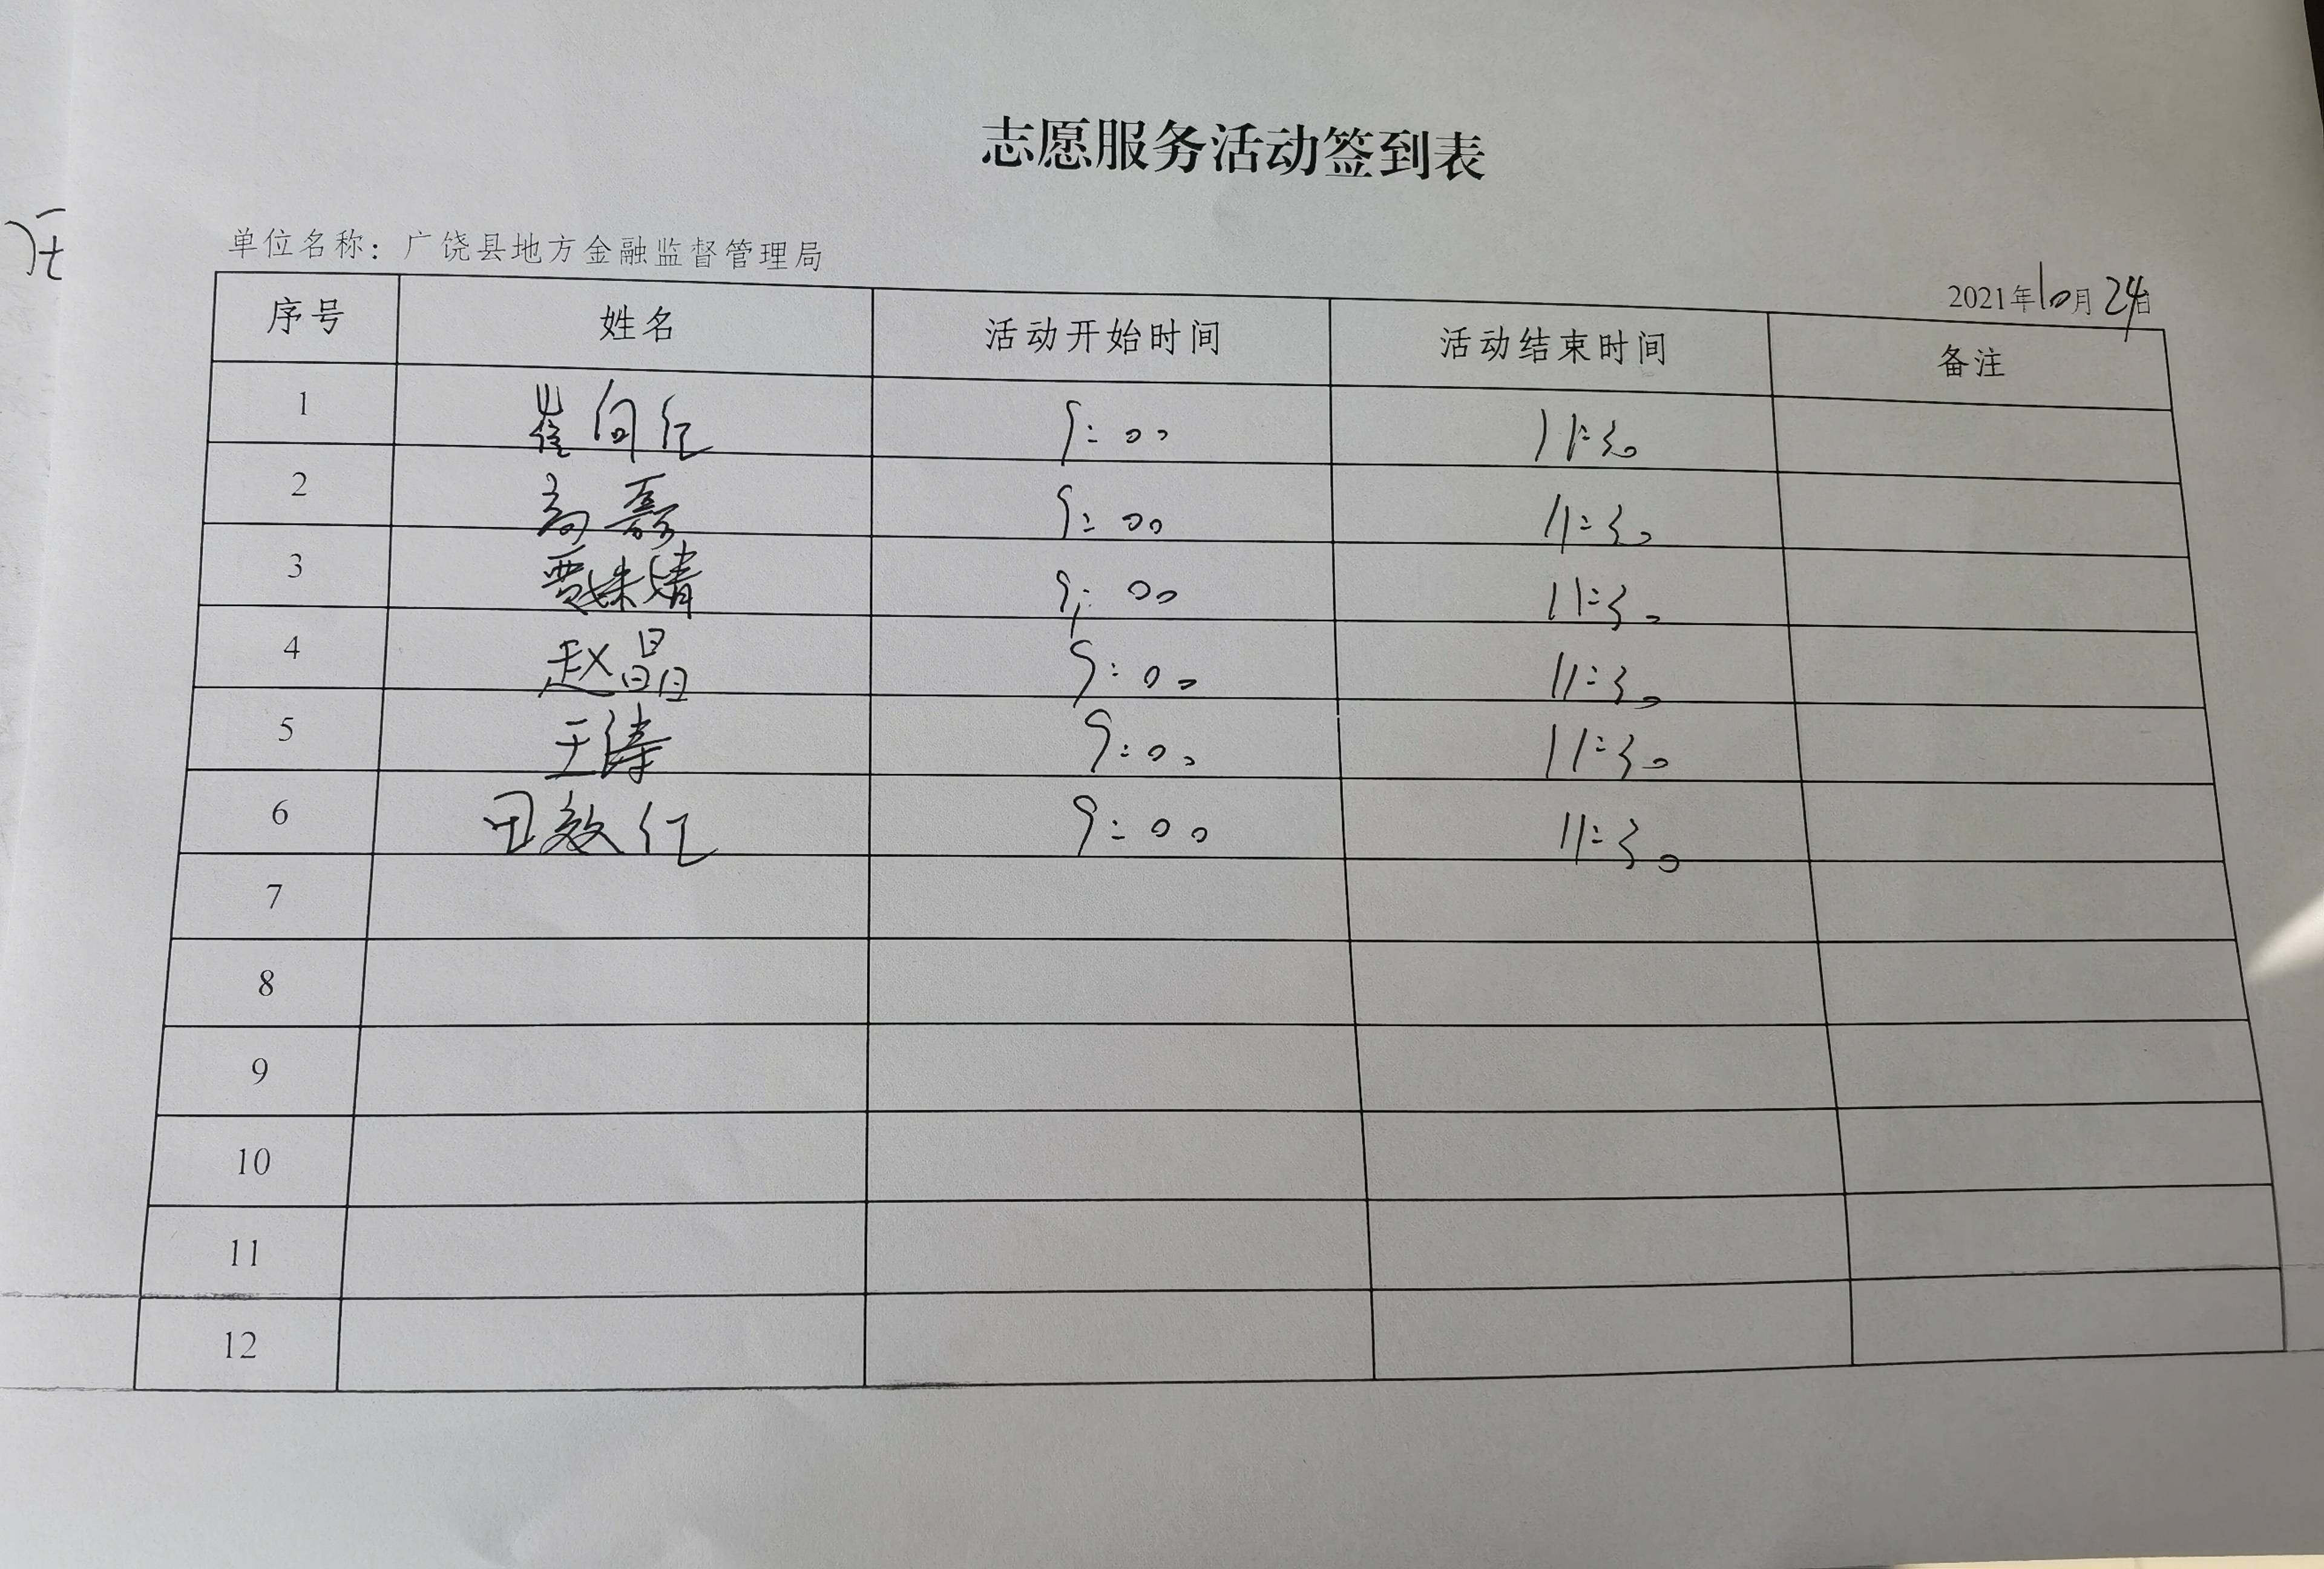 志愿服务活动签到表
单位名称：广饶县地方金融监督管理局
2021年10月24日
序号 姓名 活动开始时间 活动结束时间 备注
1 崔向红 9:00 11:30
2 高磊 9:00 11:30
3 贾姝婧 9:00 11:30
4 赵晶 9:00 11:30
5 王涛 9:00 11:30
6 田效红 9:00 11:30
7
8
9
10
11
12